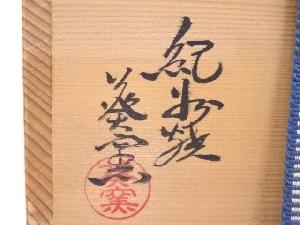 紀州焼
葵窯